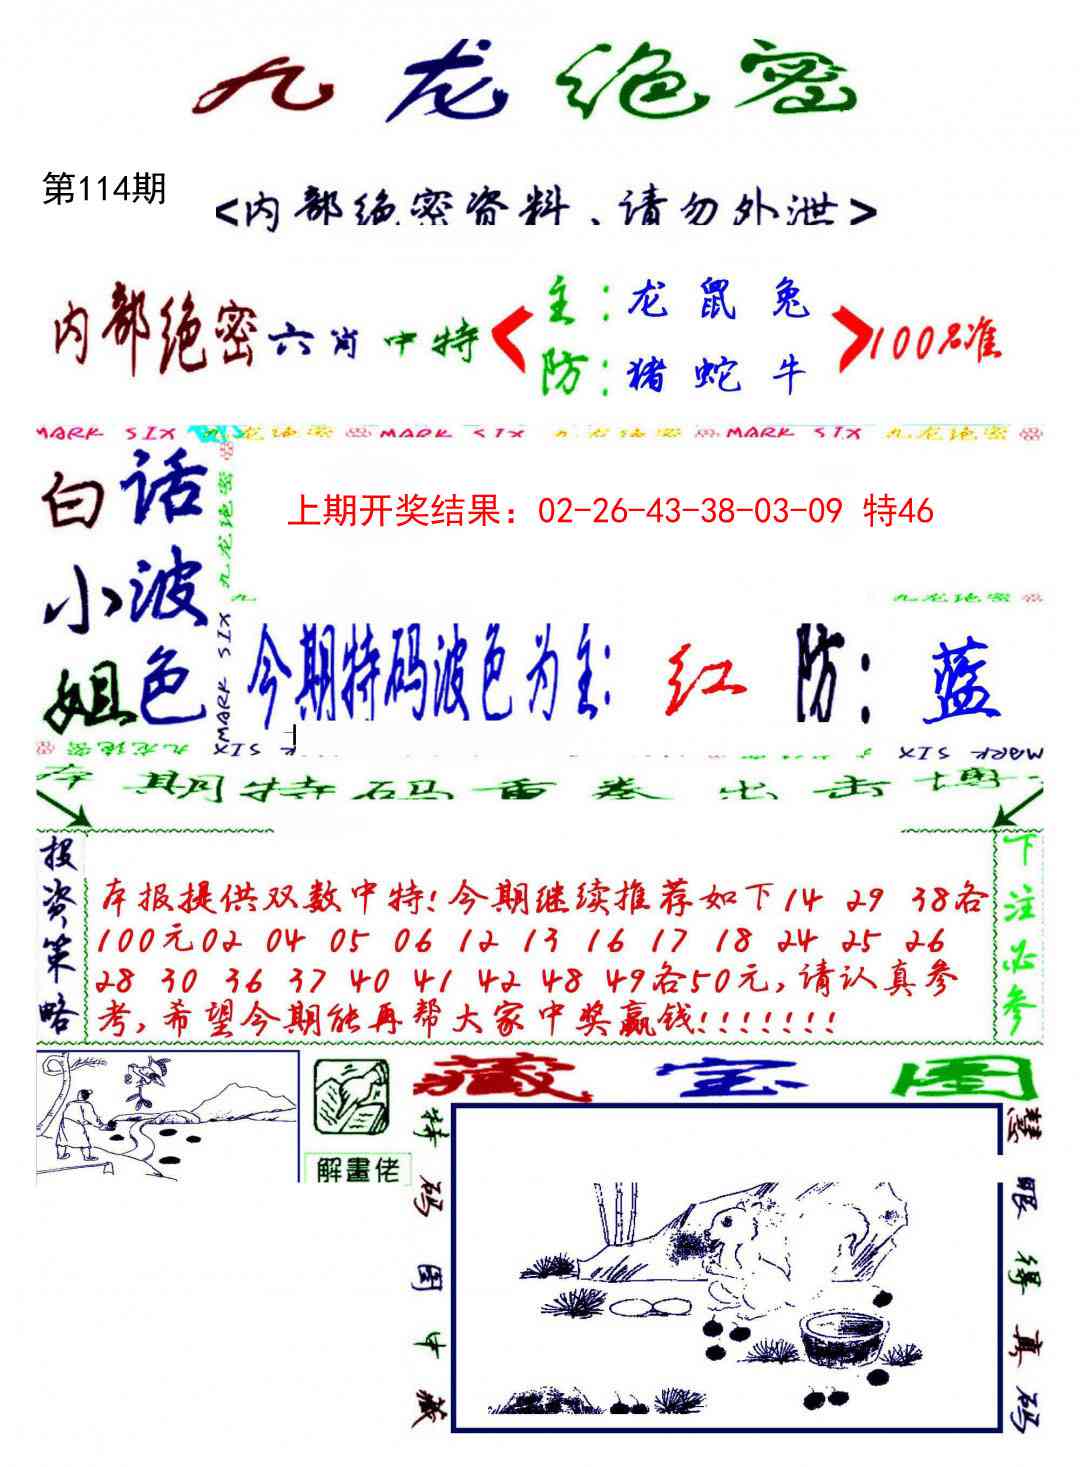 九龙绝密
第114期
<内部绝密资料、请勿外泄>
内部绝密六肖中特
主：龙 鼠 兔
防：猪 蛇 牛
100%准
MARK SIX 九龙绝密 MARK SIX 九龙绝密 MARK SIX 九龙绝密
白话
小波
姐色
九龙绝密
MARK SIX
上期开奖结果：02-26-43-38-03-09 特46
九龙绝密
今期特码波色为主：红 防：蓝
九龙绝密 MARK SIX
MARK SIX
本期特码重拳出击博
投资策略
本报提供双数中特！今期继续推荐如下14 29 38各
100元02 04 05 06 12 13 16 17 18 24 25 26
28 30 36 37 40 41 42 48 49各50元，请认真参
考，希望今期能再帮大家中奖赢钱！！！！！！！
下注必参
解畫佬
藏宝图
特码图中藏
慧眼得真码